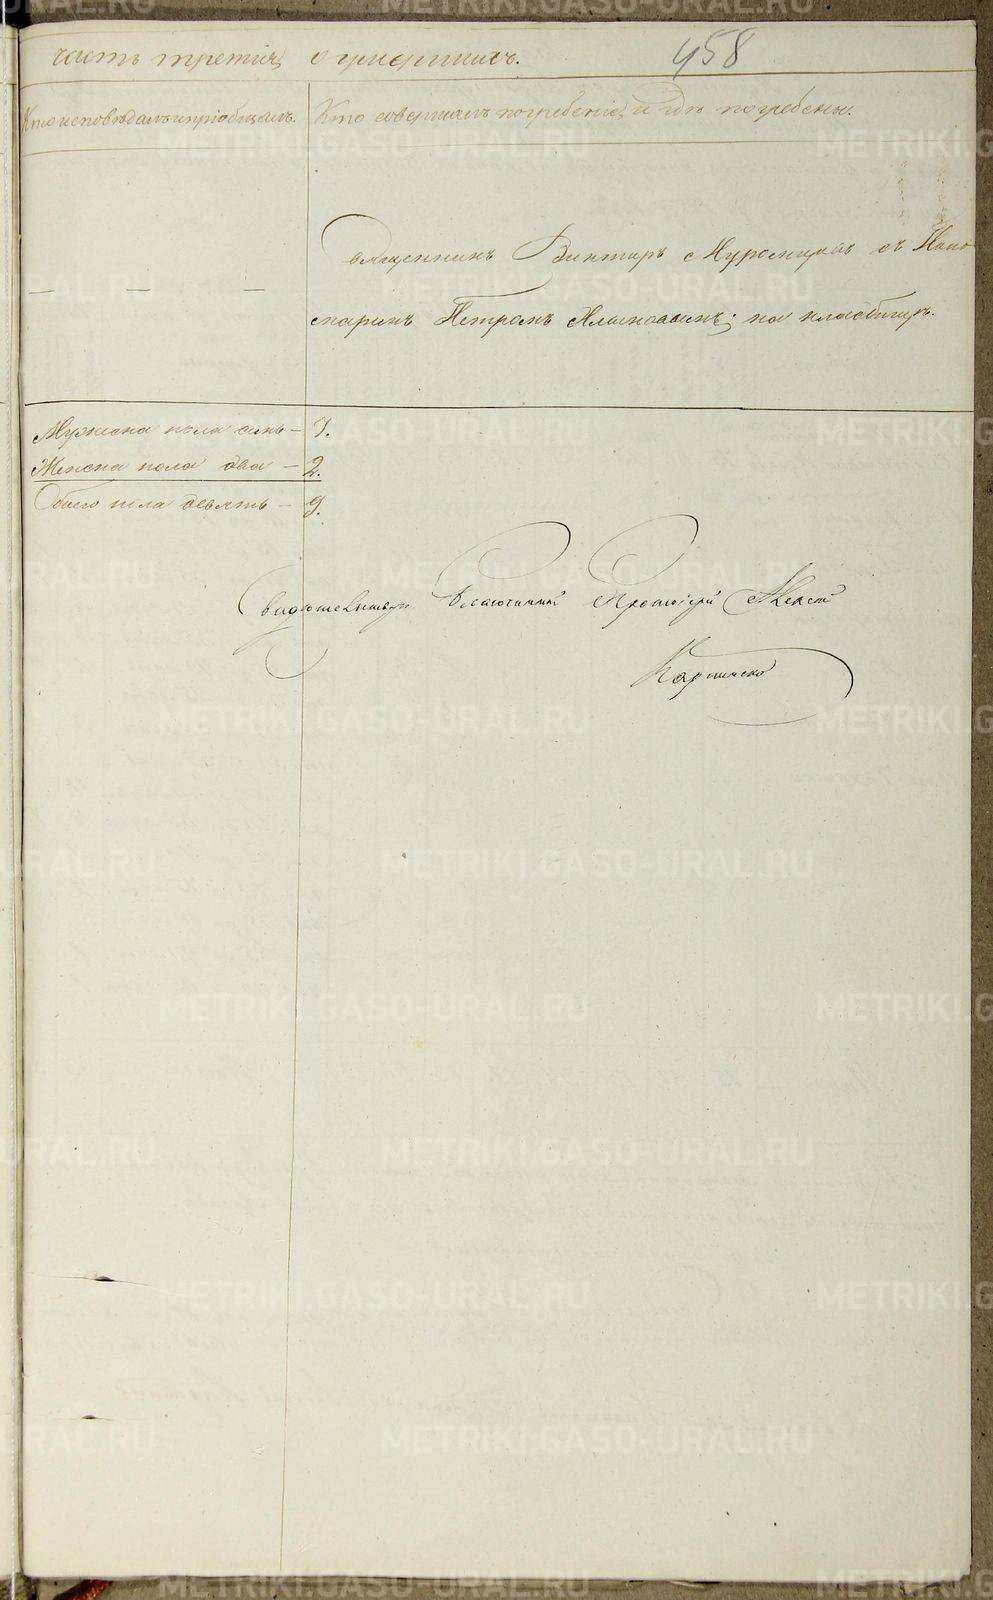 часть третія, о умершихъ. 458
Кто исповѣдалъ и пріобщалъ. Кто совершалъ погребеніе, и гдѣ погребены.
Священникъ Викторъ Муромцовъ съ Поно
маремъ Петромъ на кладбищѣ.
Мужска пола семь – 7.
Женска пола два – 2.
Обоего пола девять – 9.
Свидѣтельствовалъ Благочинный Протоіерей
METRIKI.GASO-URAL.RU